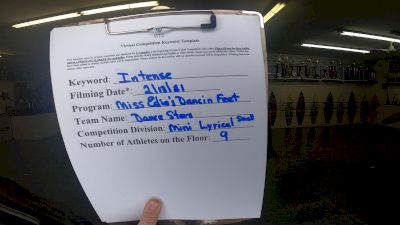 Virtual Competition Keyword Template
Keyword: Intense
Filming Date*: 2/18/21
Program: Miss Edie's Dancin Feet
Team Name: Dance Stars
Competition Division: Mini Lyrical Small
Number of Athletes on the Floor: 9